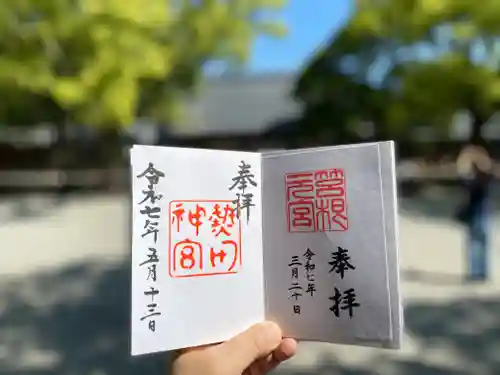 奉拝
令和七年
三月二十日
元宮
奉拝
神宮
令和七年五月十三日